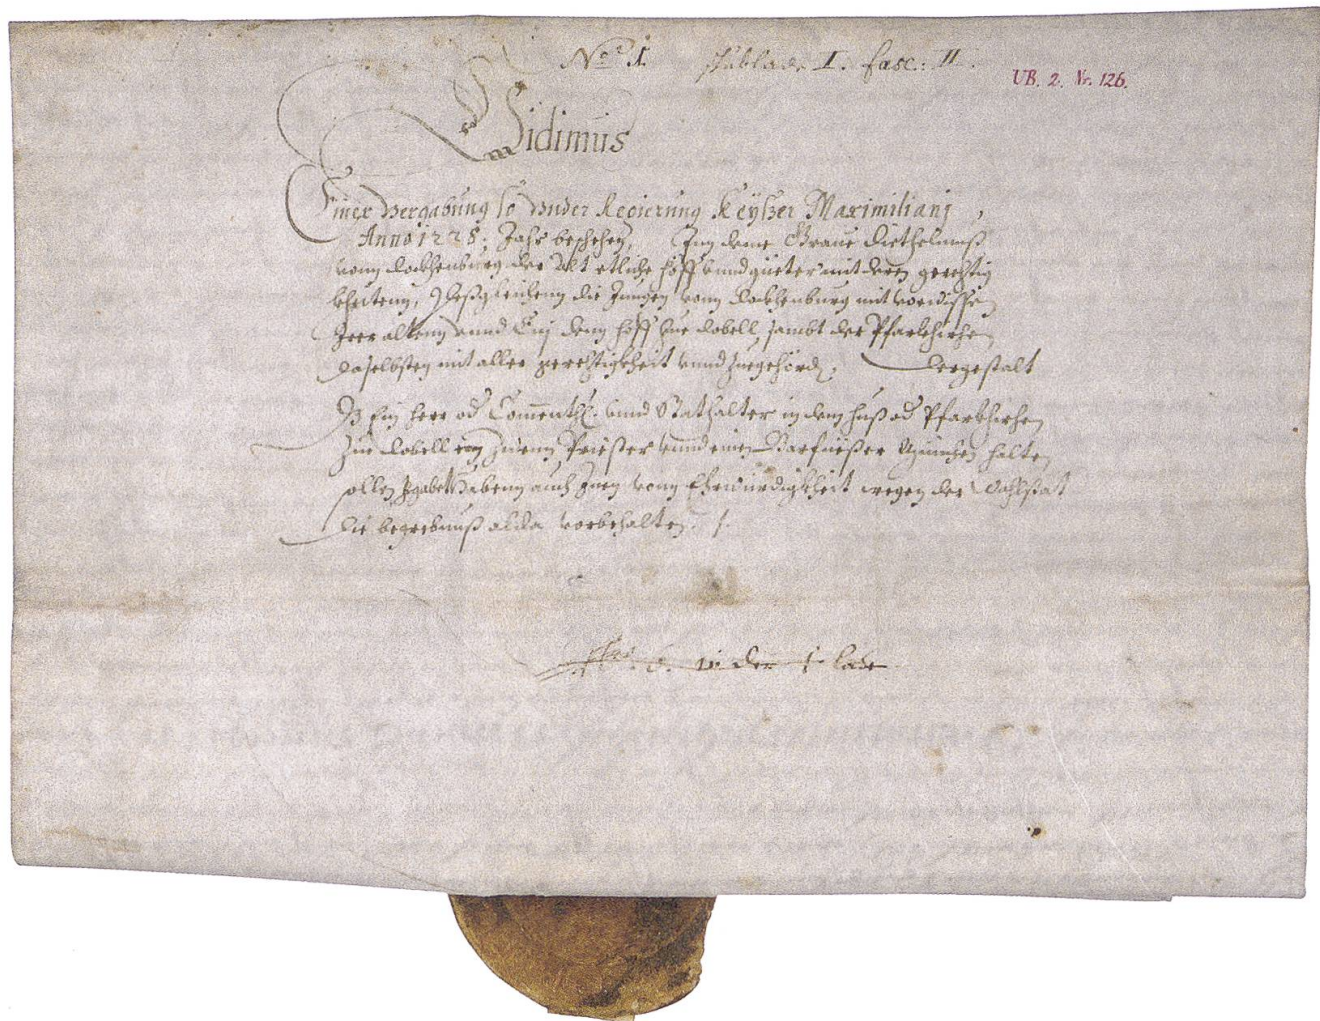 No. 1. Schublade I. Fasc: II.
UB. 2. Nr. 126.
Vidimus
Einer Vergabung so Under Regierung Keyßer Maximiliani,
Anno 1228. Jahr beschehen, Inn deme Graue Diethelmuß
vonn Dockhenburg der Alt etliche höff vnnd güeter mit deren gerechtig
kheitenn, Deßgleichenn die Jungen vonn Dockhenburg mit vorwissen
Jrer altenn vnnd denn hoff zue Dobell, sambt der Pfarkhirchen
daselbsten mit aller gerechtigkheit vnnd zuegehörd, dergestalt
Herr od Commenth. vnnd Stathalter in dem huß od Pfarkhirchen
Zue Dobell zwenn Priester vnnd einen Barfueßer München halten
sollen, habenn auch vonn Ehrwürdigkheit wegen der Wahlstat
die begrebnuß alda vorbehalten.
6. in der lade